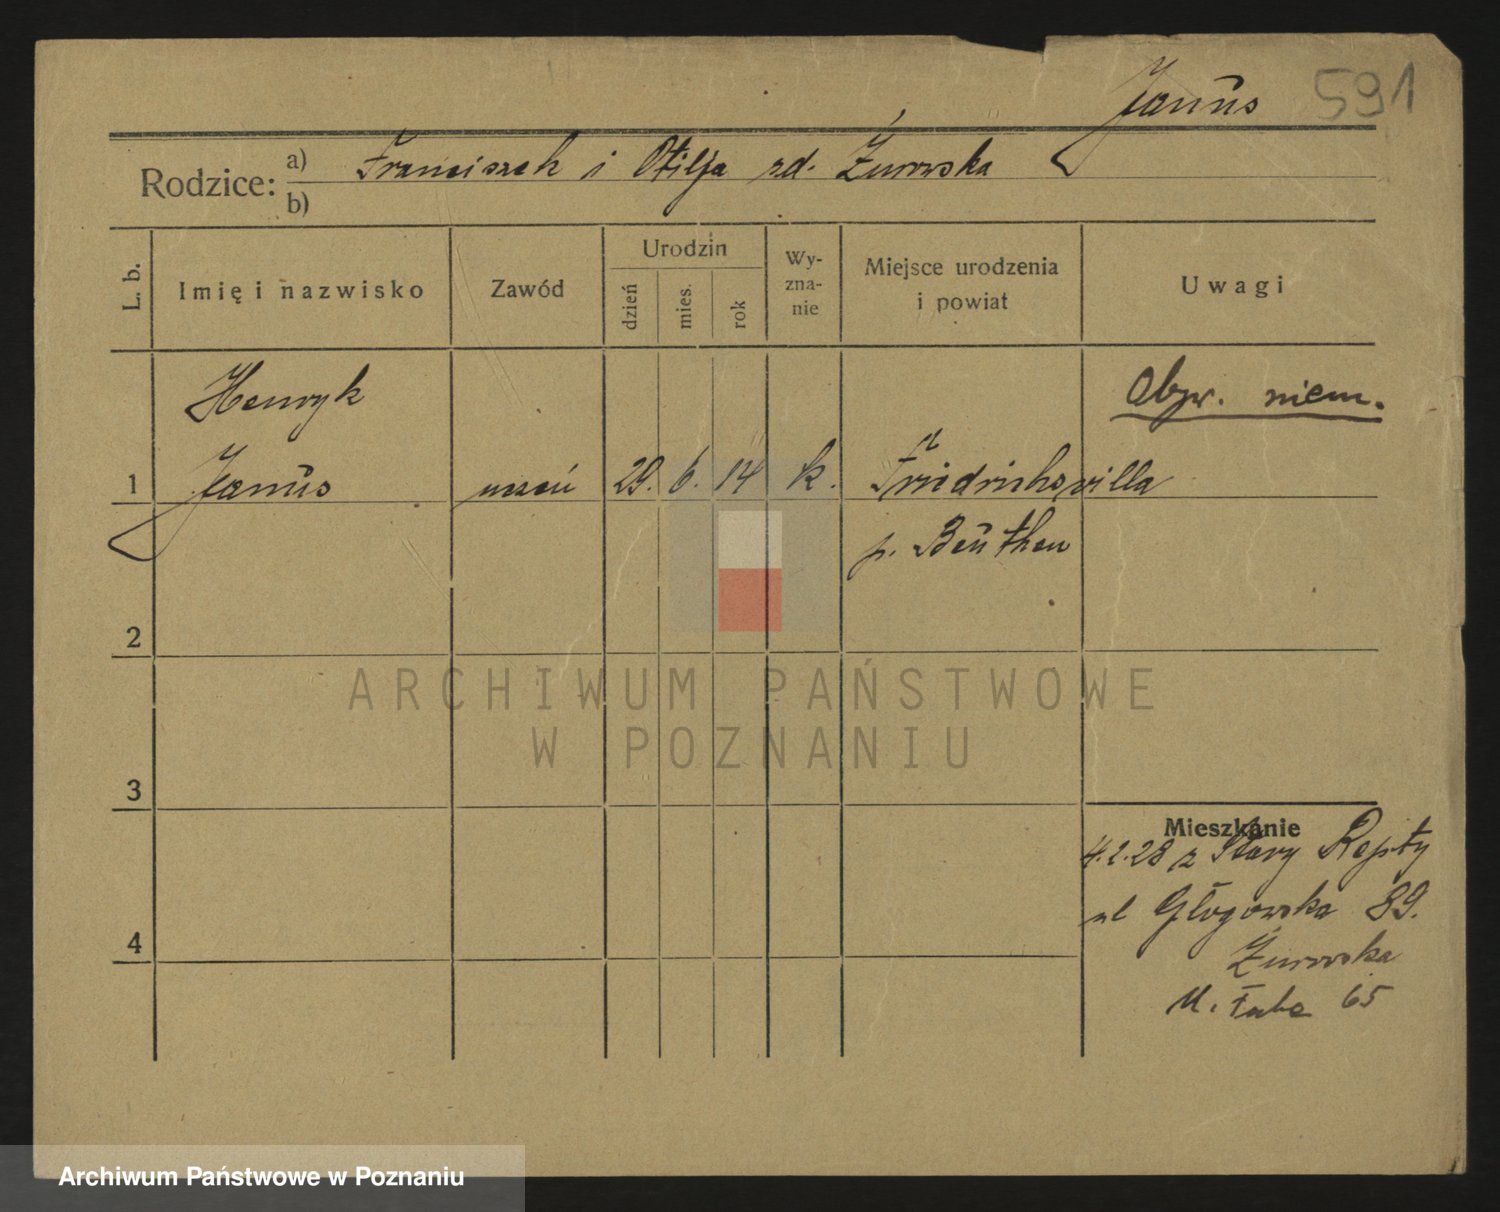 Janus 591
Rodzice: a) Franciszek i Otilja zd. Żurowska
b)
L. b. Imię i nazwisko Zawód Urodzin dzień mies. rok Wy-zna-nie Miejsce urodzenia i powiat Uwagi
Henryk Obyw. niem.
1 Janus uczeń 29. 6. 14 k. Fridrichsvilla
p. Beuthen
2
3
Mieszkanie
4.2.28 z Stary Repty
ul Głogowska 89.
4 Żurowska
M. 65
ARCHIWUM PAŃSTWOWE
W POZNANIU
Archiwum Państwowe w Poznaniu